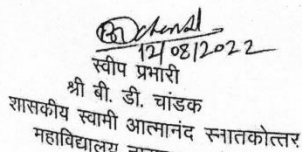 12/08/2022
स्वीप प्रभारी
श्री बी. डी. चांडक
शासकीय स्वामी आत्मानंद स्नातकोत्तर
महाविद्यालय